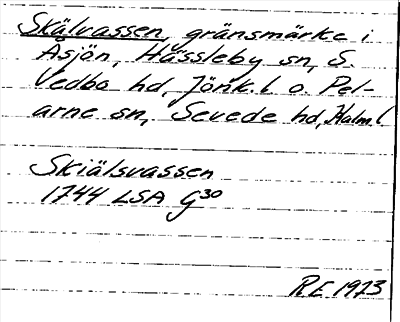 Skälvassen, gränsmärke i
Åsjön, Hässleby sn, S.
Vedbo hd, Jönk. l o. Pel-
arne sn, Sevede hd, Kalm l
Skiälsvassen
1744 LSA G30
RE 1973